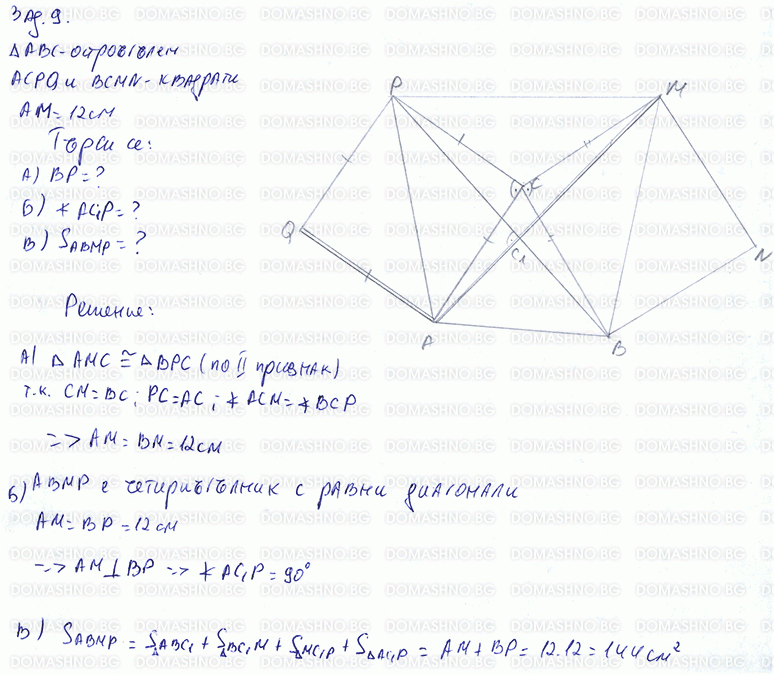 Зад. 9.
△ABC - остроъгълен
ACPQ и BCMN - квадрати
AM = 12 см
Търси се:
А) BP = ?
Б) ∢ AC₁P = ?
В) S_ABMP = ?
P
M
C
Q
C₁
N
A
B
Решение:
А) △ AMC ≅ △ BPC (по II признак)
т.к. CM = BC ; PC = AC ; ∢ ACM = ∢ BCP
=> AM = BM = 12 см
Б) ABMP е четириъгълник с равни диагонали
AM = BP = 12 см
=> AM ⊥ BP => ∢ AC₁P = 90°
В) S_ABMP = S_△ABC₁ + S_△BC₁M + S_△MC₁P + S_△AC₁P = AM + BP = 12.12 = 144 см²
DOMASHNO.BG